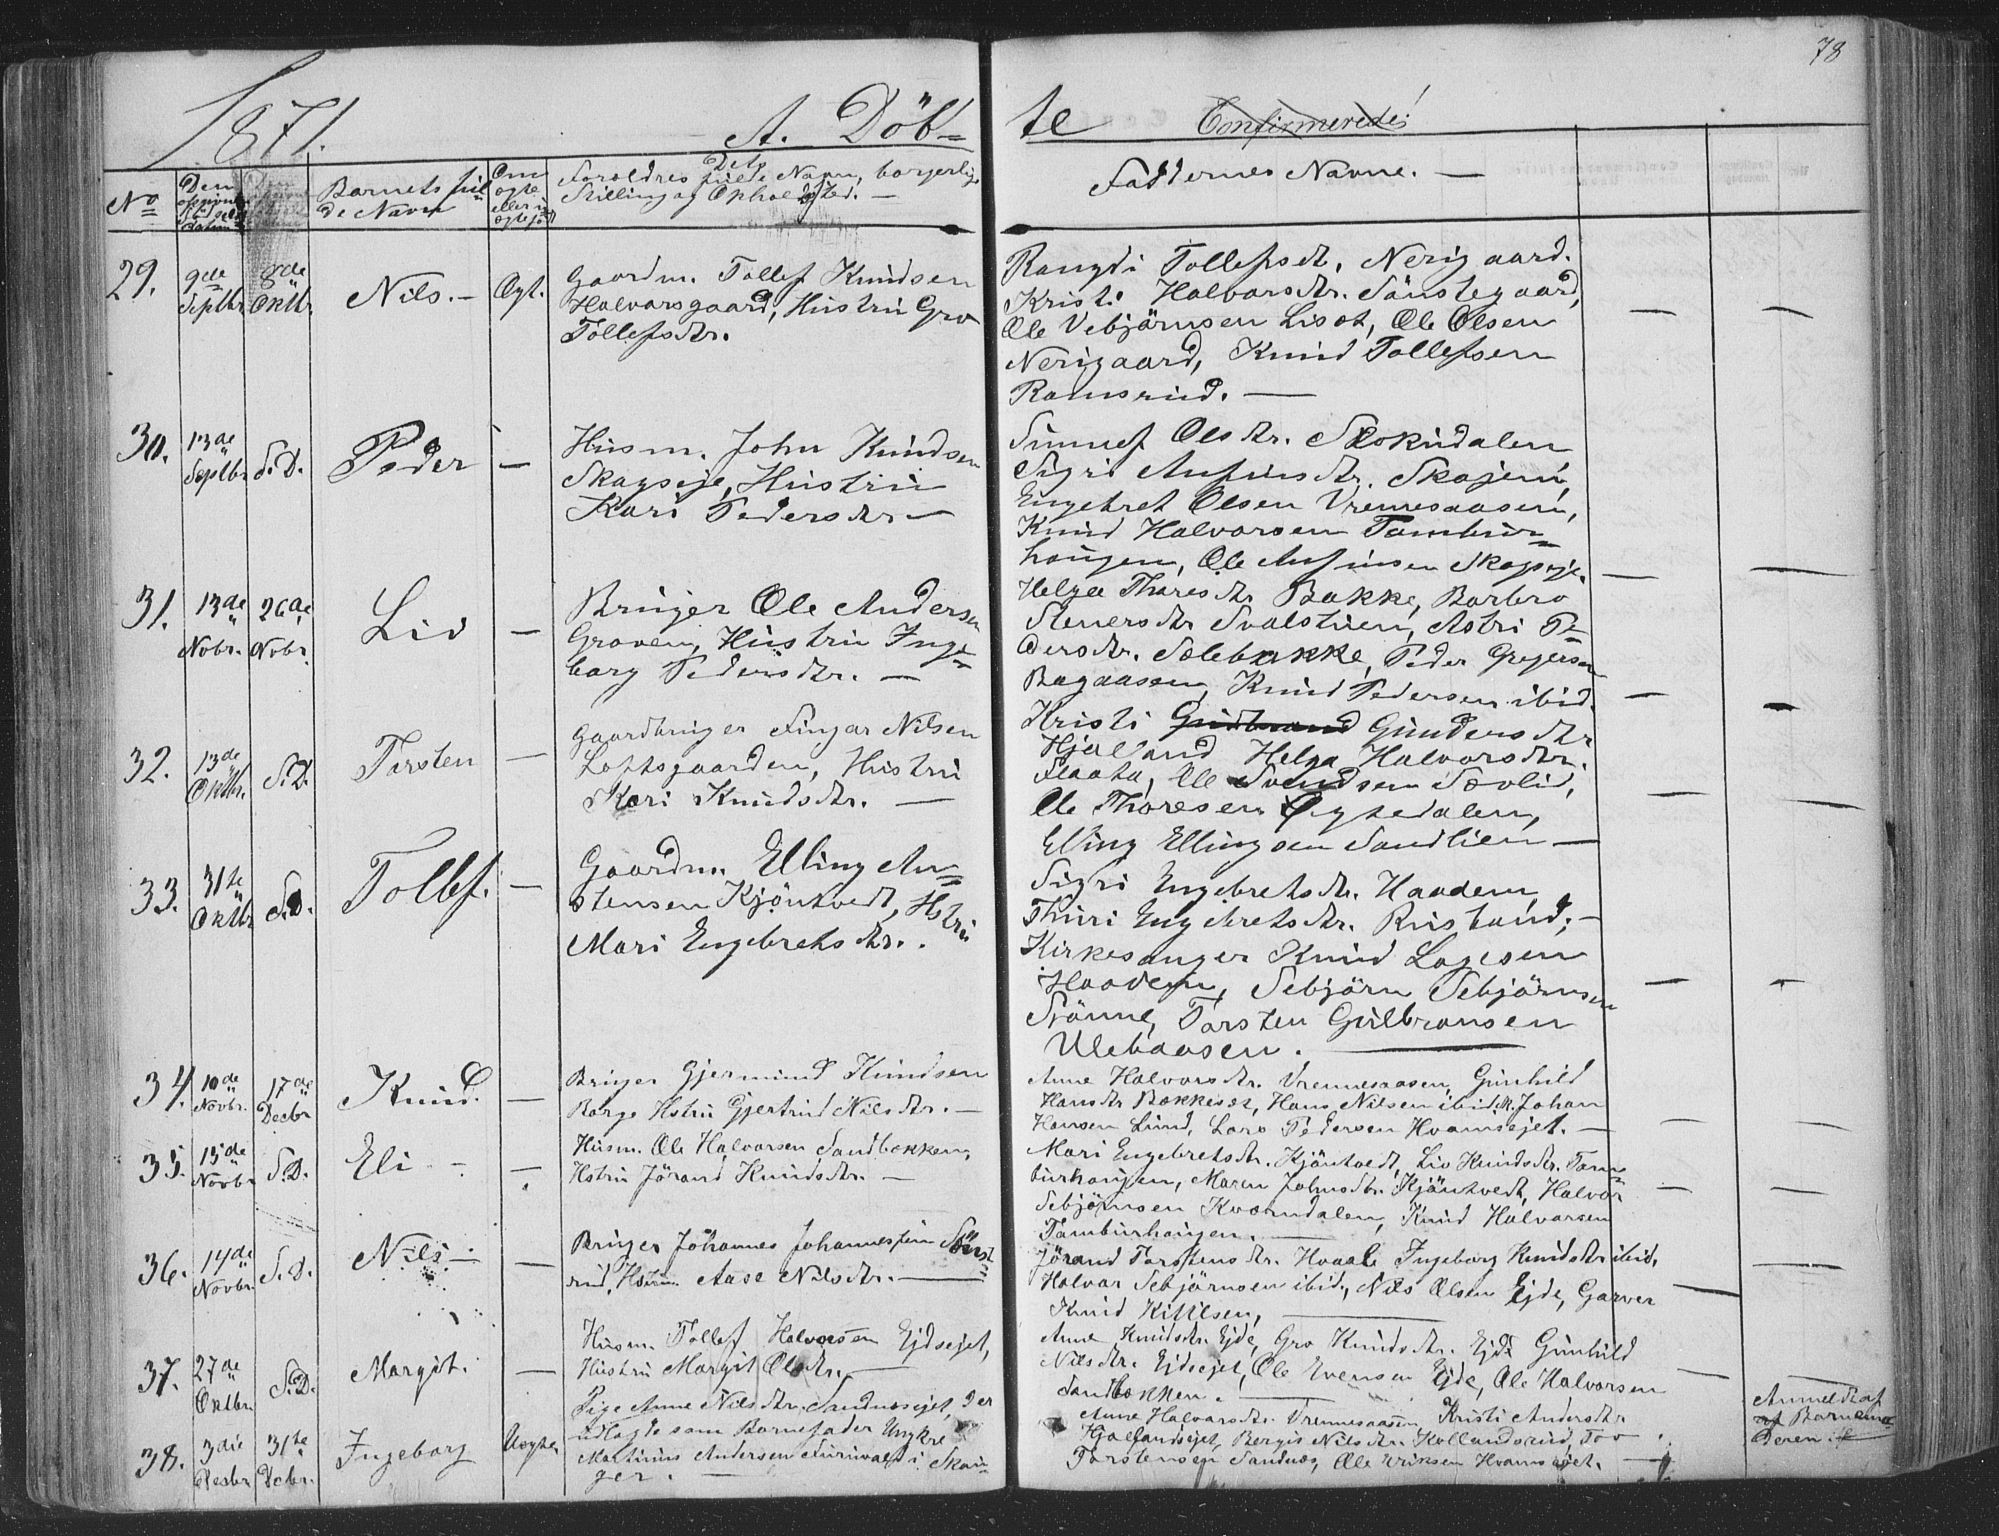 78
1871.
A. Döb=
te
Confirmerede
No
Barnets ful
de Navn
Foreldres fulde Navn, borgerlige
Stilling og Opholdsted. —
Faddernes Navne. —
29.
9de
Septbr
8de
Oktbr.
Nils. —
Ægt.
Gaardm. Tollef Knudsen
Halvorsgaard, Hustru Gro
Tollefsdtr.
Rangdi Tollefsdt, Nerigaard.
Kristi Halvorsdtr. Sönstegaard,
Ole Vebjörnsen Liset, Ole Olsen
Nerigaard, Knud Tollefsen
Ramsrud. —
30.
13de
Septbr
S.D.
Peder
—
Husm. John Knudsen
Skagseje, Hustru
Kari Pedersdtr —
Sunnef Olsdtr.
Sigri Anfinsdtr. Skajem,
Engebret Olsen Vrenesaasen,
Knud Halvorsen Tambur=
haugen, Ole Anfinsen Skagseje.
31.
13de
Nobr.
26de
Nobr.
Liv
—
Bruger Ole Andersen
Groven, Hustru Inge=
borg Pedersdtr. —
Helga Thoresdtr Bakke, Barbro
Steners dtr Svalstuen, Astri Pe=
dersdtr. Solebakke, Peder Gregersen
Bagaasen, Knud Pedersen ibid.
32.
13de
Oktbr.
S.D.
Torsten
—
Gaardbruger Fingar Nilsen
Loftsgaarden, Hustru
Kari Knudsdtr. —
Kristi Gudbrand Gundersdtr
Hjalland Helga Halvorsdtr.
Flaata, Ole Svendsen Sevlid,
Ole Thoresen
Elling Ellingsen Sandlien —
33.
31te
Oktbr
S.D.
Tollef.
—
Gaardm. Elling An=
stensen Kjöntvedt, Hstru
Mari Engebretsdtr.
Sigri Engebretsdtr. Haadem,
Thuri Engebretsdtr. Rusland, —
Kirkesanger Knud Lagesen
Haadem, Sebjörn Sebjörnsen
Frönne, Torsten Gulbransen
Ulehaasen.
34.
10de
Novbr.
17de
Decbr
Knud.
—
Bruger Gjermund Knudsen
Borge Hstru Gjertrud Nilsdtr. —
Anne Halvorsdtr. Vrennesaasen, Gunhild
Hansdtr Bakkeset, Hans Nilsen ibid, M. Johan
Hansen Lund, Lars Pedersen Hvamsejet. —
35.
15de
Novbr
S.D.
Eli
—
Husm. Ole Halvorsen Sandbakken,
Hstru Jörand Knudsdtr. —
Mari Engebretsdtr. Kjöntvedt, Liv Knudsdtr. Tam=
burhaugen, Maren Johnsdtr. Kjöntvedt, Halvor
Sebjörnsen Kvorndalen, Knud Halvorsen
Tamburhaugen. —
36.
14de
Novbr.
S.D.
Nils. —
—
Bruger Johannes Johannessen Sönst=
rud, Hstru Aase Nilsdtr. —
Jörand Torstensdtr. Hvaale Ingeborg Knudsdtr ibid.
Halvor Sebjörnsen ibid., Nils Olsen Ejde, Garver
Knud Kittilsen, —
37.
27de
Oktbr
S.D.
Margit.
—
Husm. Tollef Halvorsen Ejdsejet,
Hustru Margit Olsdtr. —
Anne Knudsdtr. Ejde, Gro Knudsdtr. Ejde Gunhild
Nilsdtr. Ejdsejet, Ole Evensen Ejde, Ole Halvorsen
Sandbakken. —
38.
3die
Decbr
31te
Debr.
Ingeborg
Uægte
Pige Anne Nilsdtr. Sandnesejet, der
udlagde som Barnefader Ungkrl
Martinus Andersen
ger. —
Anne Halvorsdtr. Vrennesaasen Kristi Andersdtr
Hjallandsejet, Bergit Nilsdtr. Kollandsrud, Tov
Torstensen Sandnes, Ole Eriksen Hvamsejet. —
Anmeldt af
af Barnemo
deren